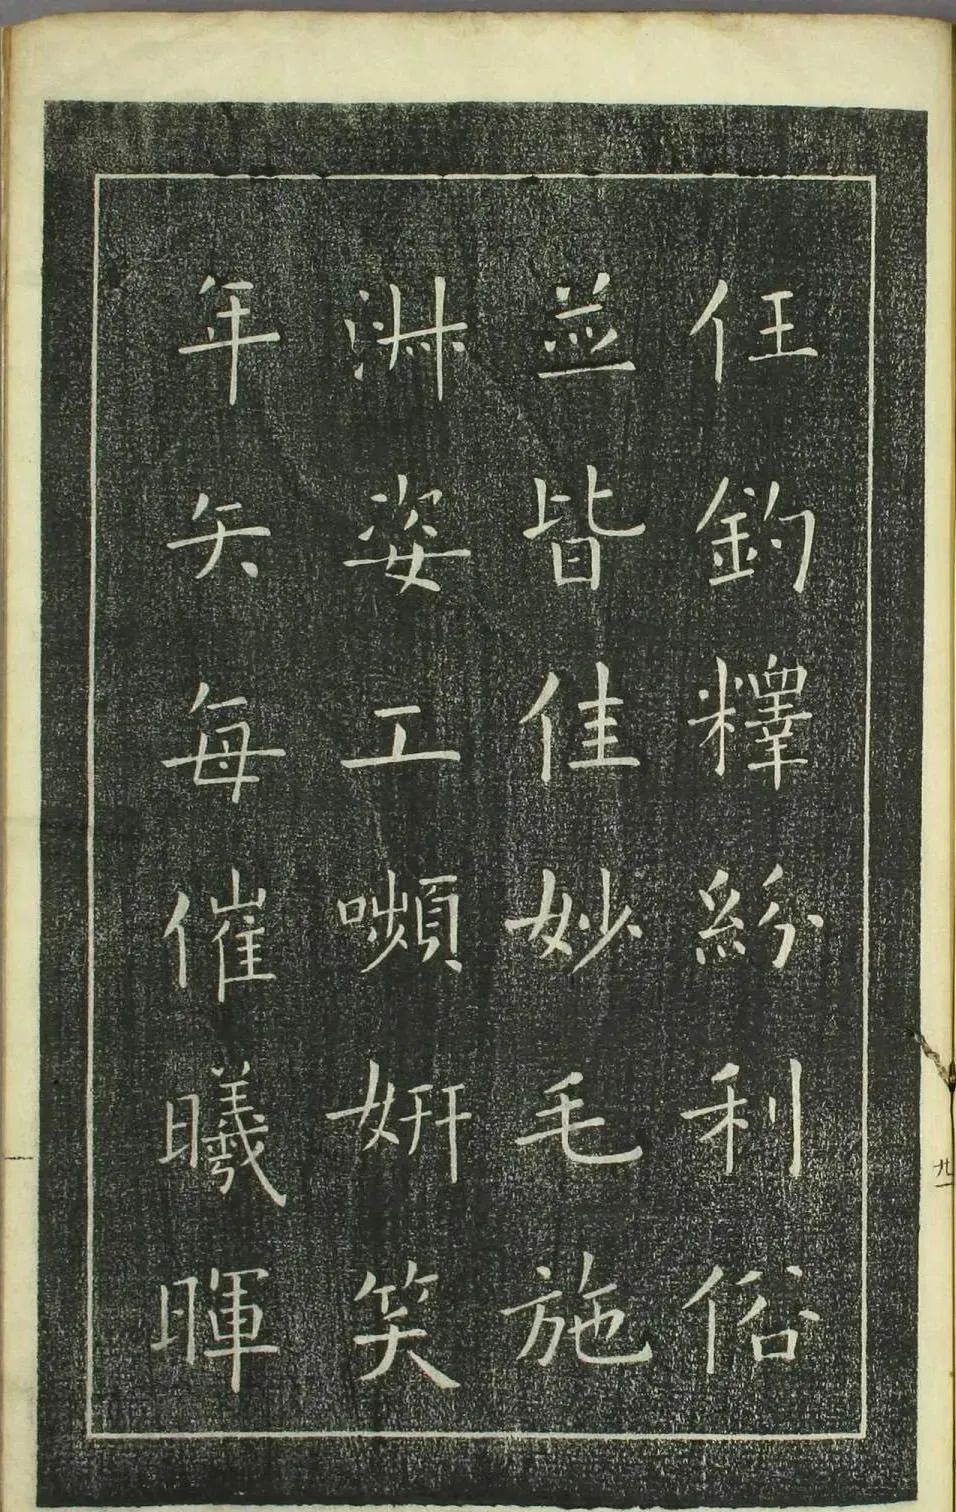 任釣釋紛利俗
並皆佳妙毛施
淋姿工嚬妍笑
年矢每催曦暉
九一